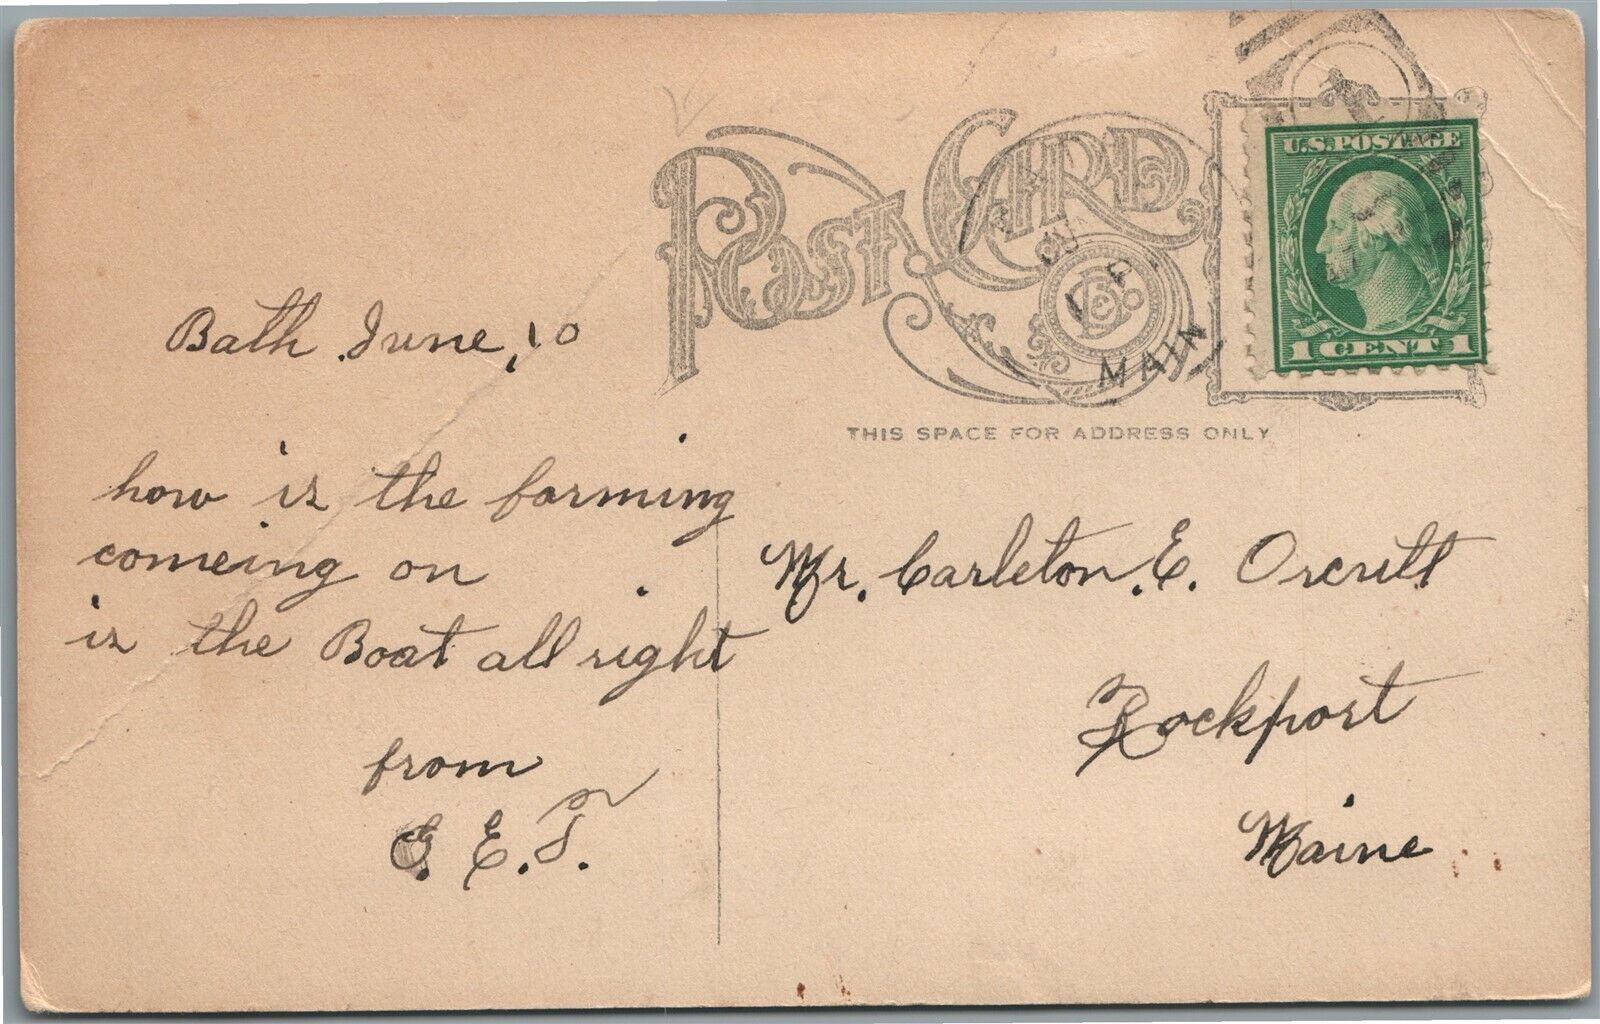 POST CARD
U.S. POSTAGE
1 CENT 1
MAIN
THIS SPACE FOR ADDRESS ONLY
Bath June, 10
how is the farming
comeing on
is the Boat all right
from
E. E. T.
Mr. Carleton. E. Orcutt
Rockport
Maine